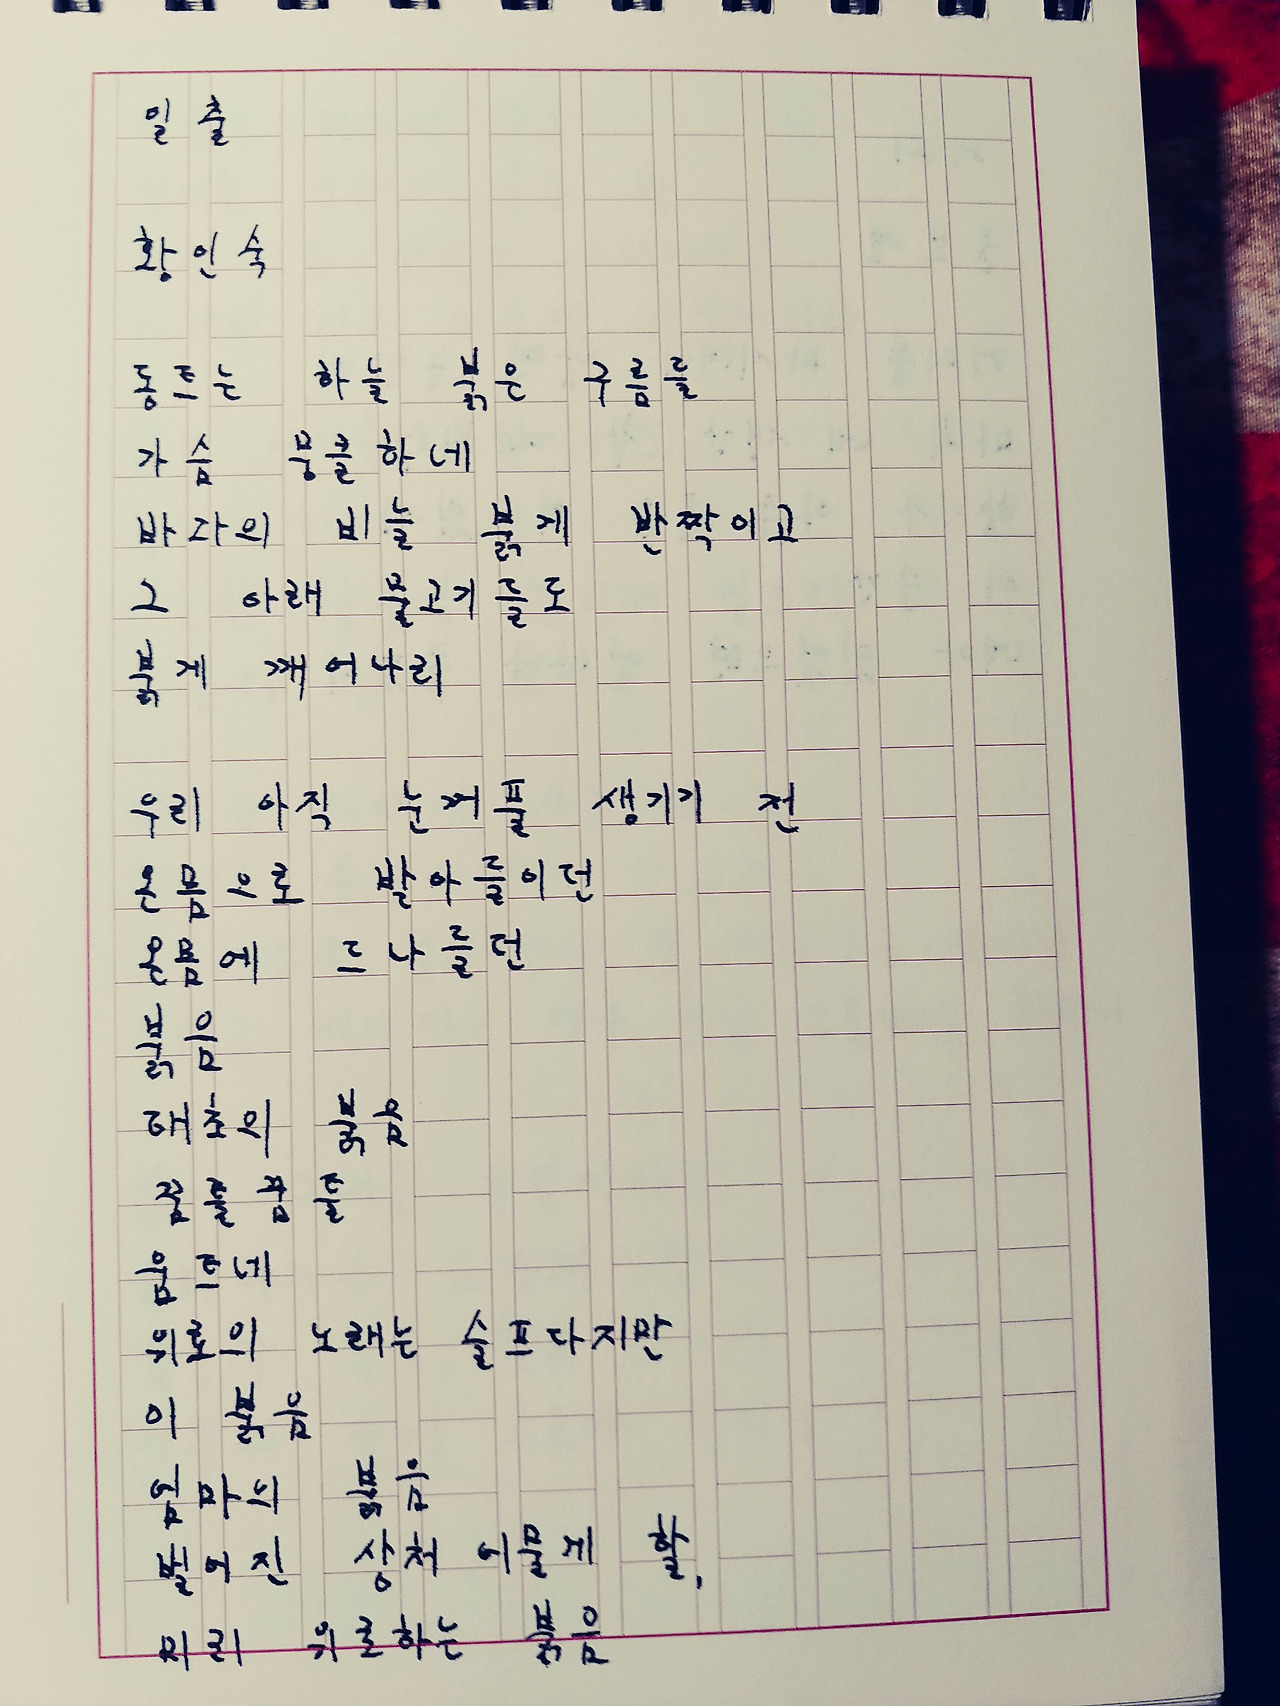 일출
황인숙
동트는 하늘 붉은 구름들
가슴 뭉클하네
바다의 비늘 붉게 반짝이고
그 아래 물고기들도
붉게 깨어나리
우리 아직 눈꺼풀 생기기 전
온몸으로 받아들이던
온몸에 드나들던
붉음
태초의 붉음
꿈틀꿈틀
움트네
위로의 노래는 슬프다지만
이 붉음
엄마의 붉음
벌어진 상처 아물게 할,
미리 위로하는 붉음